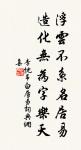 浮雲不系名居易
造化無為字樂天
李忱弔白居易